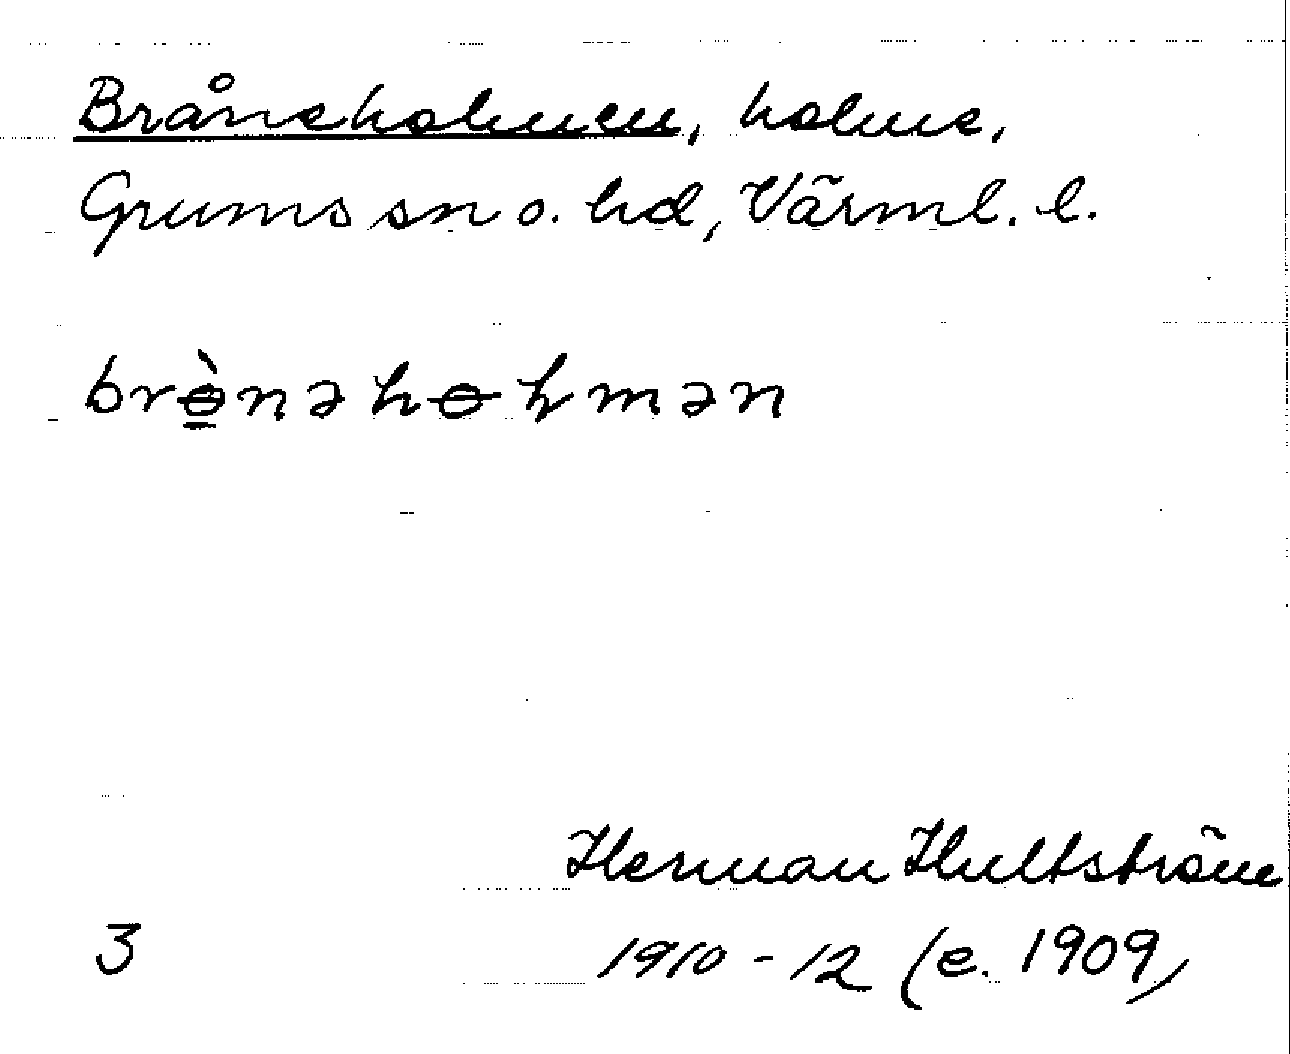 Bråneholmen, holme,
Grums sn o. hd, Värml. l.
brɵ̲̀nəhɵɫmən
Herman Hultström
3 1910-12 (e. 1909)